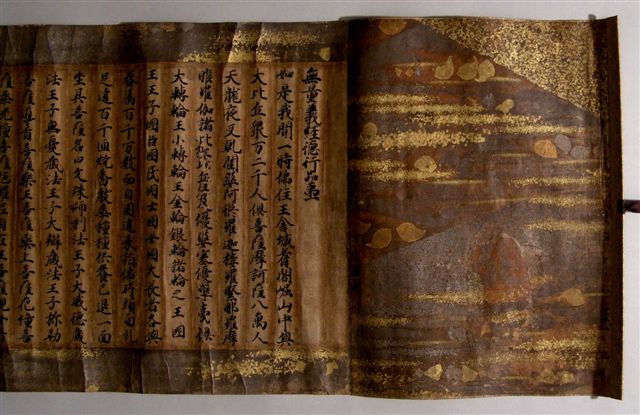 無量義經德行品壹
如是我聞一時佛住王舍城耆闍崛山中與
大比丘眾万二千人俱菩薩摩訶薩八萬人
天龍夜叉乾闥婆阿脩羅迦樓羅緊那羅摩
睺羅伽諸比丘比丘尼及優婆塞優婆夷俱
大轉輪王小轉輪王金輪銀輪諸輪之王國
王王子國臣國民國士國女國大長者各與
眷属百千万數而自圍遶来詣佛所頭面礼
足遶百千匝燒香散華種種供養已退一面
坐其菩薩名曰文殊師利法王子大威德藏
法王子無憂藏法王子大辯藏法王子弥勒
菩薩導首菩薩藥王菩薩藥上菩薩花幢菩